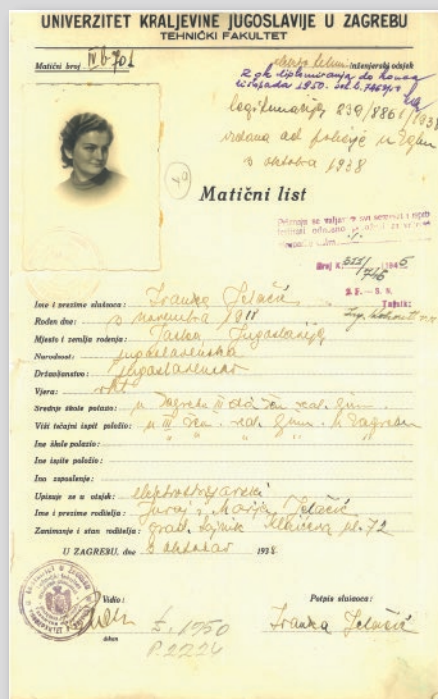 UNIVERZITET KRALJEVINE JUGOSLAVIJE U ZAGREBU
TEHNIČKI FAKULTET
Matični broj IV b-701
inženjerski odsjek
Rok diplomiranja do konca
listopada 1950.
legitimacija 839/8861/1938
izdana od policije u Zgbu
3 oktobra 1938
40
Matični list
Broj K. 1945
S. F. - S. B.
Tajnik:
Ime i prezime slušaoca: Ivanka Jelačić
Rođen dne: novembra 1918
Mjesto i zemlja rođenja: Jaska, Jugoslavija
Narodnost: jugoslavenska
Državljanstvo: jugoslavensko
Vjera: rkt
Srednje škole polazio: u Zagrebu III žen. real. gimn.
Viši tečajni ispit položio: u III žen. real. gimn. u Zagrebu
Ine škole polazio:
Ine ispite položio:
Ino zaposlenje:
Upisuje se u otsjek: elektrostrojarski
Ime i prezime roditelja: Juraj i Marija Jelačić
Zanimanje i stan roditelja: grad. Klaićeva ul. 72
U ZAGREBU, dne 3 oktobar 1938.
Vidio:
Potpis slušaoca:
dekan
Ivanka Jelačić
Š. 1950
P. 2224